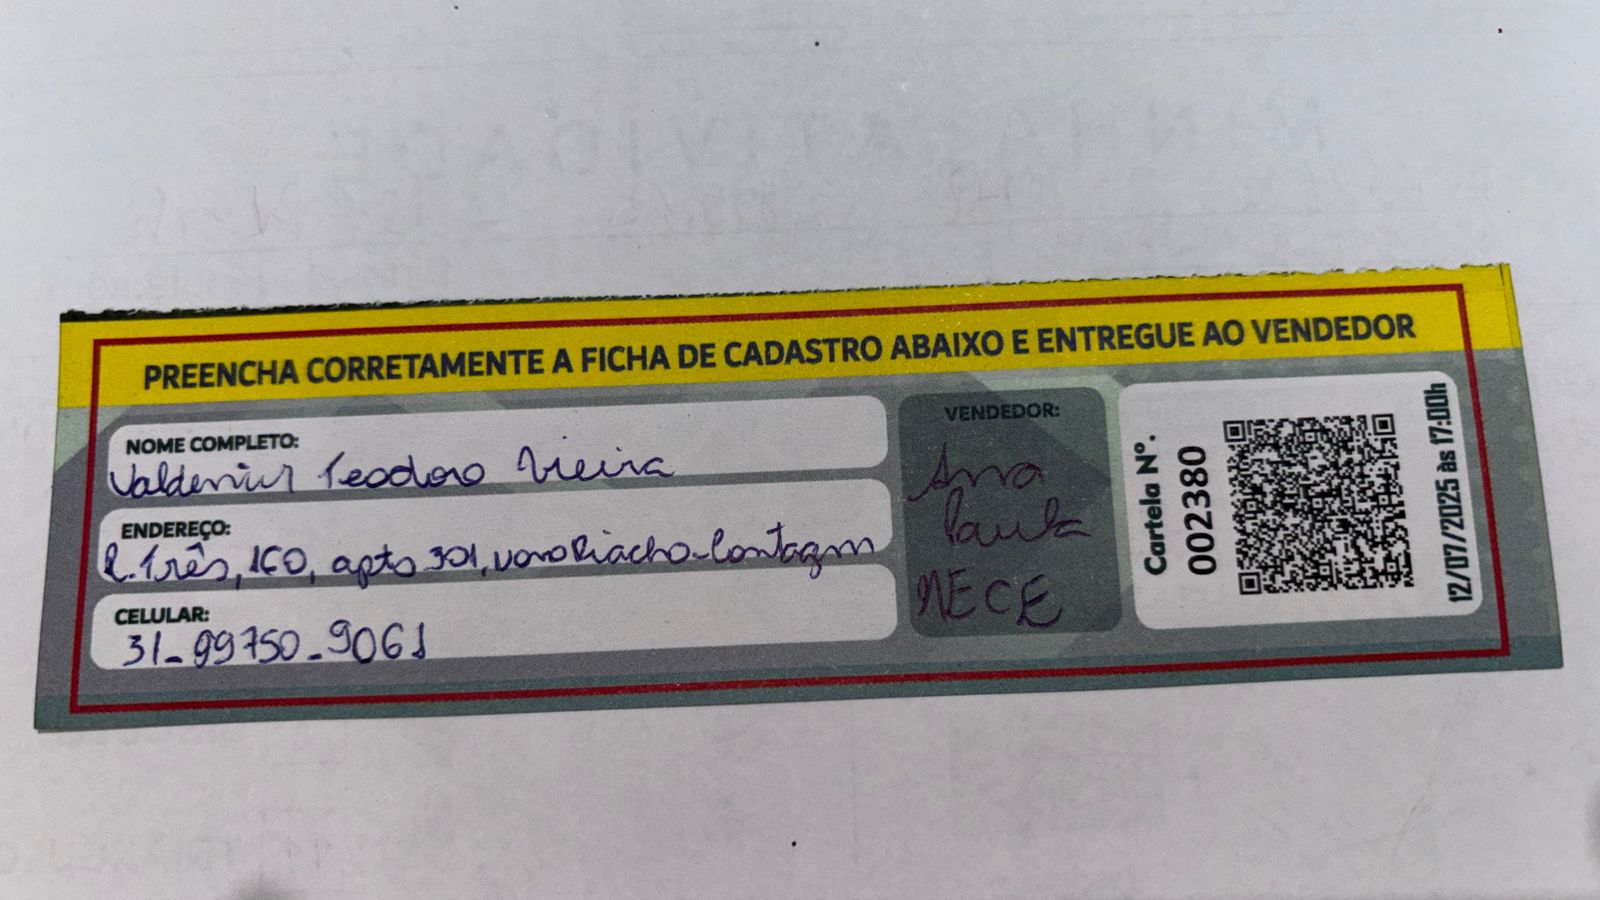 PREENCHA CORRETAMENTE A FICHA DE CADASTRO ABAIXO E ENTREGUE AO VENDEDOR
NOME COMPLETO:
Teodoro Vieira
ENDEREÇO:
R. Três, 160, apto 301, novo Riacho - Contagem
CELULAR:
31-99750-9061
VENDEDOR:
Ana
Paula
NECE
Cartela Nº.
002380
12/07/2025 às 17:00h